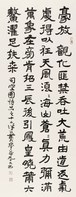 豪放 觀化匪禁吞吐大荒由道返氣
處得以狂天風浪浪海山蒼蒼真力彌
滿萬象在旁前招三辰後引鳳皇曉策六
鰲濯足扶桑 司空圖詩品